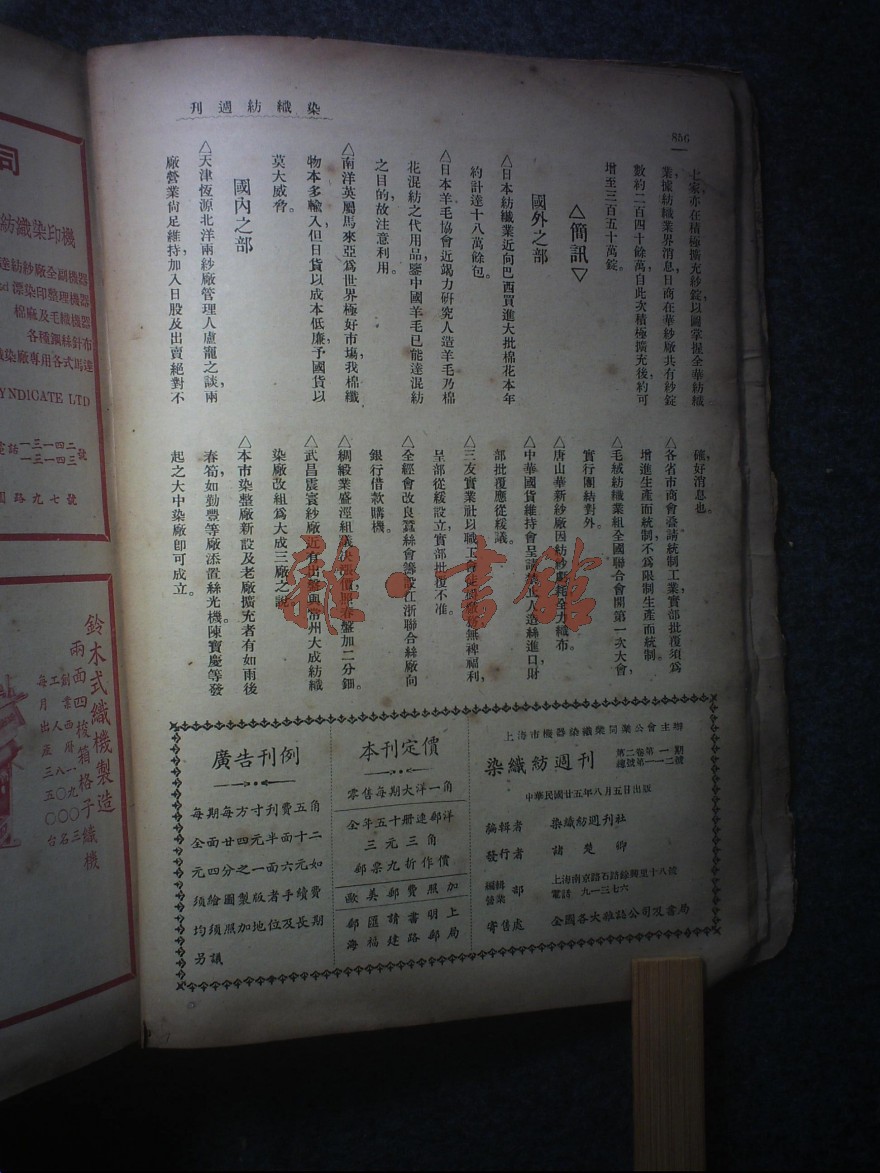 染織紡週刊
856
七家，亦在積極擴充紗錠，以圖掌握全華紡織
業，據紡織業界消息，日商在華紗廠共有紗錠
數約二百四十餘萬，自此次積極擴充後，約可
增至三百五十萬錠。
△簡訊▽
國外之部
△日本紡織業近向巴西買進大批棉花本年
約計達十八萬餘包。
△日本羊毛協會近竭力研究人造羊毛乃棉
花混紡之代用品，鑒中國羊毛已能達混紡
之目的，故注意利用。
△南洋英屬馬來亞爲世界極好市塲，我棉織
物本多輸入，但日貨以成本低廉，予國貨以
莫大威脅。
國內之部
△天津恆源北洋兩紗廠管理人盧寵之談，兩
廠營業尙足維持，加入日股及出賣絕對不
確，好消息也。
△各省市商會臺請統制工業，實部批覆須爲
增進生產而統制，不爲限制生產而統制。
△毛絨紡織業組全國聯合會開第一次大會，
實行團結對外。
△唐山華新紗廠因紡紗虧耗全力織布。
△中華國貨維持會呈請禁止人造絲進口，財
部批覆應從緩議。
△三友實業社以職工會無裨福利，
呈部從緩設立，實部批復不准。
△全經會改良蠶絲會籌設江浙聯合絲廠向
銀行借款購機。
△綢緞業盛涇組議決漲價，照春盤加二分鈿。
△武昌震寰紗廠近有出盤與常州大成紡織
染廠改組爲大成三廠之說。
△本市染整廠新設及老廠擴充者有如雨後
春筍，如勤豐等廠添置絲光機，陳寶慶等發
起之大中染廠卽可成立。
雜·書館
上海市機器染織業同業公會主辦
染織紡週刊
第二卷第一期
總號第一一二號
中華民國廿五年八月五日出版
編輯者 染織紡週刊社
發行者 諸楚卿
編輯
營業 部
上海南京路石路餘興里十八號
電話 九一三七六
寄售處 全國各大雜誌公司及書局
本刊定價
零售每期大洋一角
全年五十册連郵洋
三元三角
郵票九折作價
歐美郵費照加
郵匯請書明上
海福建路郵局
廣告刊例
每期每方寸刊費五角
全面廿四元半面十二
元四分之一面六元如
須繪圖製版者手續費
均須照加地位及長期
另議
司
紡織染印機
達紡紗廠全副機器
漂染印整理機器
棉廠及毛織機器
各種鋼絲針布
染廠專用各式馬達
YNDICATE LTD
電話 一三一四二號
一三一四三
路九七號
鈴木式織機製造
兩面四梭箱格子織機
創業西曆一九〇
工人三八〇
每月出產三五〇〇台